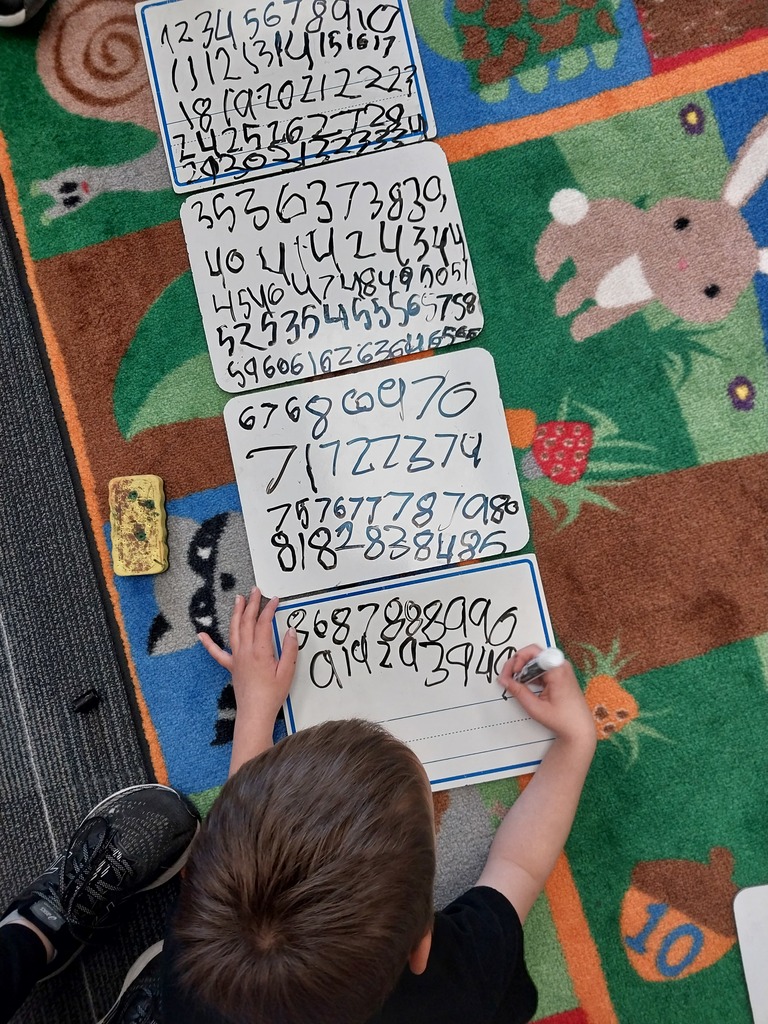 1 2 3 4 5 6 7 8 9 10
11 12 13 14 15 16 17
18 19 20 21 22 23
24 25 26 27 28
29 30 31 32 33 34
35 36 37 38 39
40 41 42 43 44
45 46 47 48 49 50 51
52 53 54 55 56 57 58
59 60 61 62 63 64 65 66
67 68 69 70
71 72 73 74
75 76 77 78 79 80
81 82 83 84 85
86 87 88 89 90
91 92 93 94 9
10